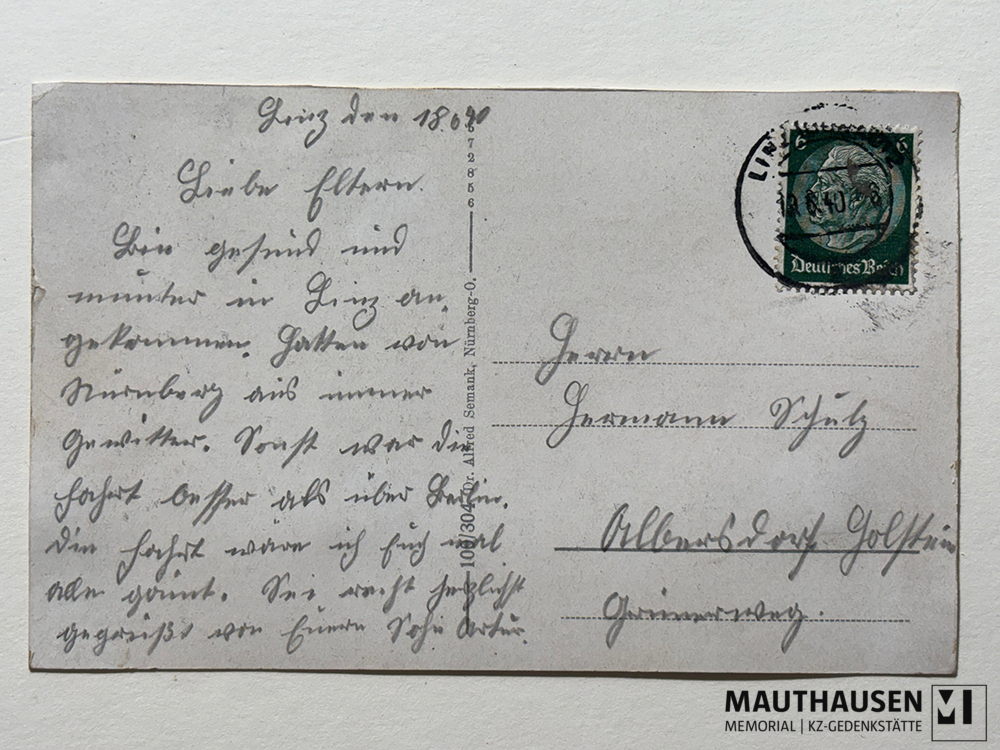 Linz den 18.6.40
Liebe Eltern.
Bin gesund und
munter in Linz an,
gekommen. Hatten von
Nürnberg aus immer
Gewitter. Sonst war die
Fahrt besser als über Berlin.
Die Fahrt wäre ich Euch mal
alle gönnt. Sei recht herzlichst
gegrüßt von Euern Sohn Artur.
572856
100/304 Dr. Alfred Semank, Nürnberg-O.
LINZ
18.6.40
6 6
Deutsches Reich
Herrn
Hermann Schulz
Albersdorf Holstein
Grünerweg.
MAUTHAUSEN
MEMORIAL | KZ-GEDENKSTÄTTE